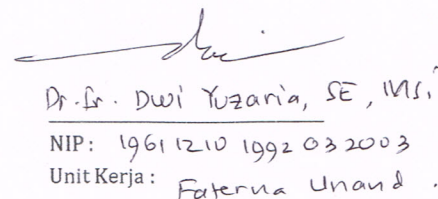 Dr. Ir. Dwi Yuzaria, SE, MSi
NIP : 19611210 1992 03 2003
Unit Kerja : Faterna Unand .